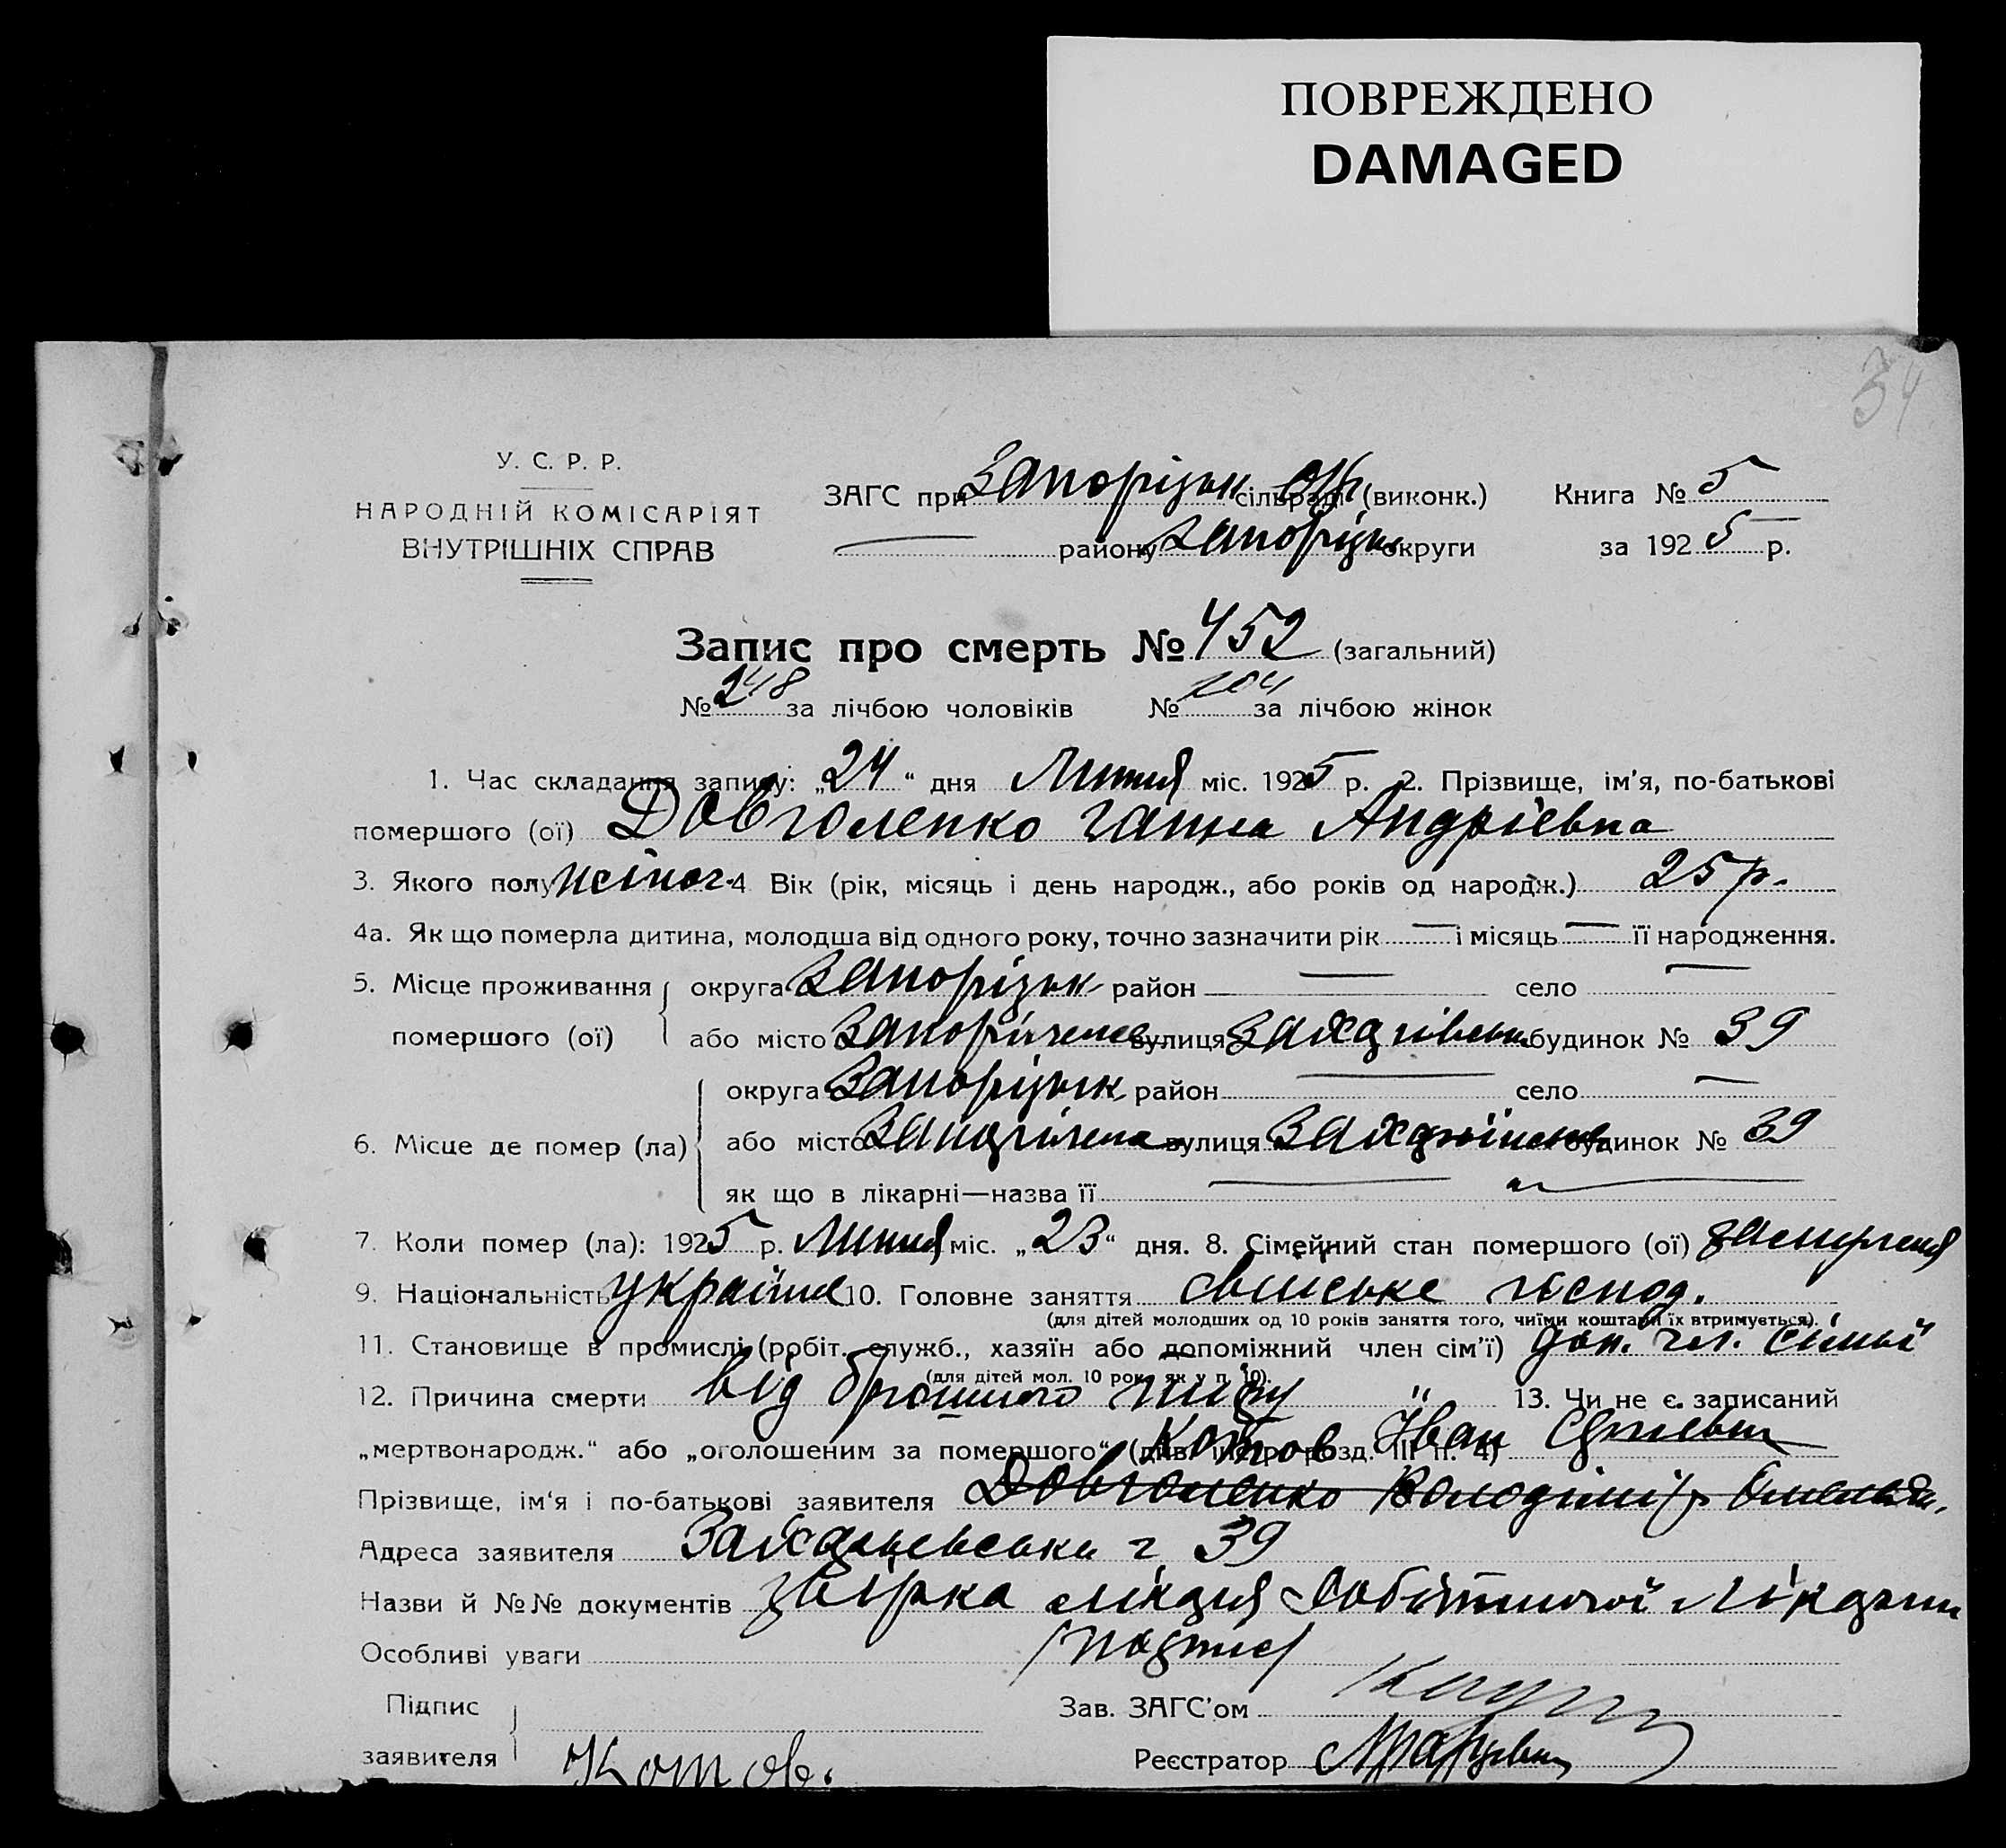 ПОВРЕЖДЕНО
DAMAGED
34
У. С. Р. Р.
НАРОДНІЙ КОМІСАРІЯТ
ВНУТРІШНІХ СПРАВ
ЗАГС при Запорізьк сільраді (виконк.) Книга № 5
району Запорізьк округи за 1925 р.
Запис про смерть № 452 (загальний)
№ 248 за лічбою чоловіків № 204 за лічбою жінок
1. Час складання запису: „24“ дня Липня міс. 1925 р. 2. Прізвище, ім'я, по-батькові
помершого (ої) Довголенко Ганна Андріевна
3. Якого полу жіноч. 4 Вік (рік, місяць і день народж., або років од народж.) 25 р.
4а. Як що померла дитина, молодша від одного року, точно зазначити рік — і місяць — її народження.
5. Місце проживання помершого (ої) округа Запорізьк район — село —
або місто Запоріжжа вулиця будинок № 39
6. Місце де помер (ла) округа Запорізьк район — село —
або місто Запоріжжа вулиця будинок № 39
як що в лікарні—назва її —
7. Коли помер (ла): 1925 р. Липня міс. „23“ дня. 8. Сімейний стан помершого (ої) замужня
9. Національність україн 10. Головне заняття свійське господ.
(для дітей молодших од 10 років заняття того, чиїми коштами їх втримується).
11. Становище в промислі (робіт., служб., хазяїн або допоміжний член сім'ї) доп. чл. сімьї
(для дітей мол. 10 рок., як у п. 10).
12. Причина смерти від брюшного тифу 13. Чи не є записаний
„мертвонародж.“ або „оголошеним за помершого“ (див. інстр. розд. III п. 4)
Котов Іван
Прізвище, ім'я і по-батькові заявителя Довголенко Володімір
Адреса заявителя 39
Назви й №№ документів лікаря
Особливі уваги /подпис/
Підпис заявителя Котов.
Зав. ЗАГС'ом
Реєстратор